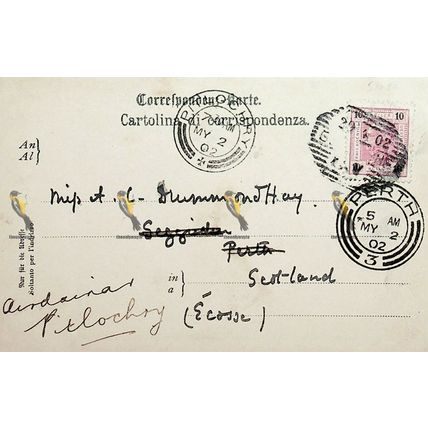 Correspondenz-Karte.
Cartolina di corrispondenza.
PITLOCHRY
7 PM
MY 2
02
10 10
02
An
Al
Miss A. C. Drummond Hay.
Seggieden
Perth
PERTH
5 AM
MY 2
02
3
Nur für die Adresse
Soltanto per l'indirizzo
in
a
Scotland
(Écosse)
Airdainar
Pitlochry